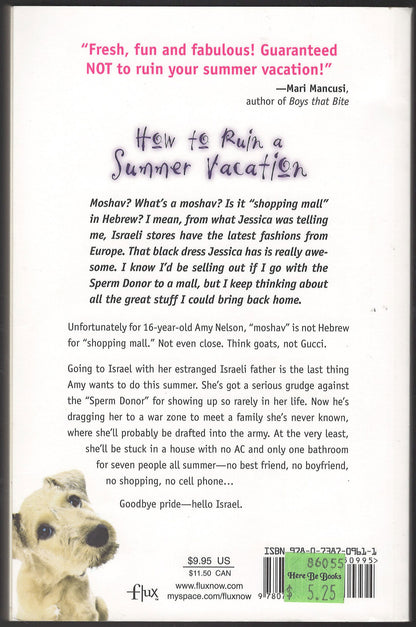 “Fresh, fun and fabulous! Guaranteed
NOT to ruin your summer vacation!”
—Mari Mancusi,
author of Boys that Bite
How to Ruin a
Summer Vacation
Moshav? What’s a moshav? Is it “shopping mall”
in Hebrew? I mean, from what Jessica was telling
me, Israeli stores have the latest fashions from
Europe. That black dress Jessica has is really awe-
some. I know I’d be selling out if I go with the
Sperm Donor to a mall, but I keep thinking about
all the great stuff I could bring back home.
Unfortunately for 16-year-old Amy Nelson, “moshav” is not Hebrew
for “shopping mall.” Not even close. Think goats, not Gucci.
Going to Israel with her estranged Israeli father is the last thing
Amy wants to do this summer. She’s got a serious grudge against
the “Sperm Donor” for showing up so rarely in her life. Now he’s
dragging her to a war zone to meet a family she’s never known,
where she’ll probably be drafted into the army. At the very least,
she’ll be stuck in a house with no AC and only one bathroom
for seven people all summer—no best friend, no boyfriend,
no shopping, no cell phone…
Goodbye pride—hello Israel.
$9.95 US
$11.50 CAN
flux
www.fluxnow.com
myspace.com/fluxnow
ISBN 978-0-7387-0961-1
86055
Here Be Books
$ 5.25
50995>
9 780